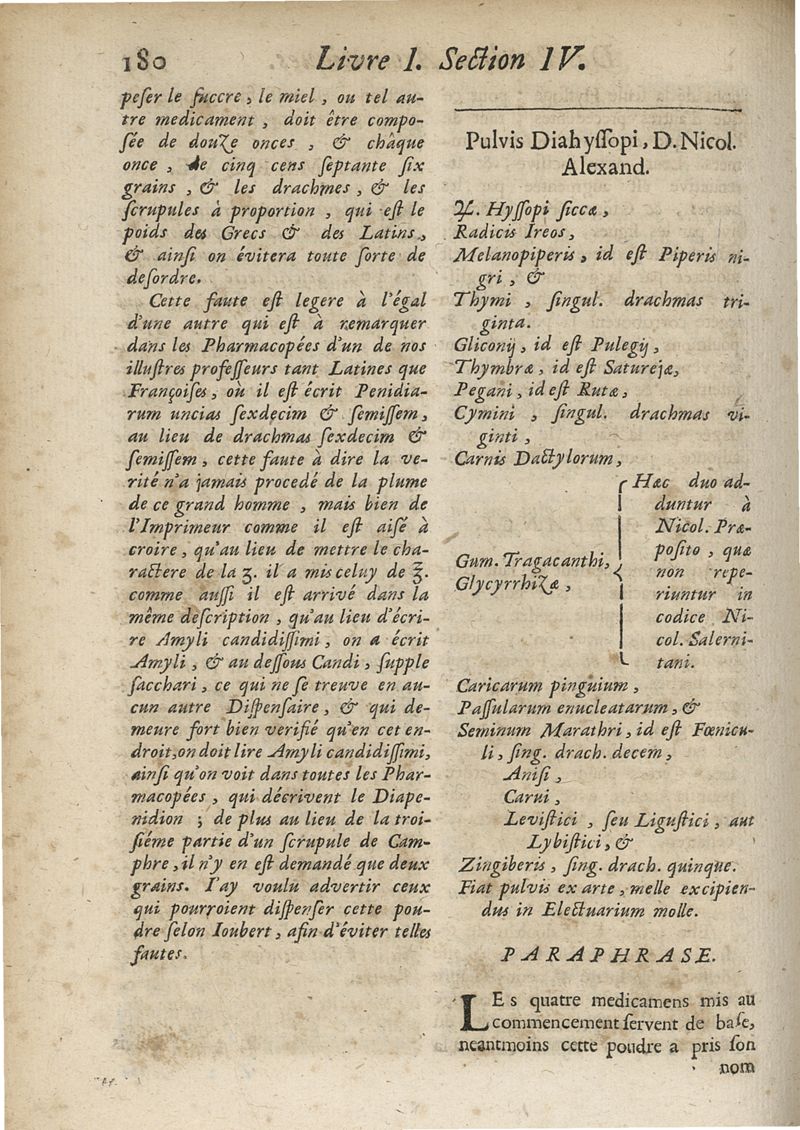 180
Livre I. Section IV.
peser le succre, le miel, ou tel au-
tre medicament, doit être compo-
sée de douze onces, & châque
once, de cinq cens septante six
grains, & les drachmes, & les
scrupules à proportion, qui est le
poids des Grecs & des Latins,
& ainsi on évitera toute sorte de
desordre.
Cette faute est legere à l'égal
d'une autre qui est à remarquer
dans les Pharmacopées d'un de nos
illustres professeurs tant Latines que
Françoises, où il est écrit Penidia-
rum uncias sexdecim & semissem,
au lieu de drachmas sexdecim &
semissem, cette faute à dire la ve-
rité n'a jamais procedé de la plume
de ce grand homme, mais bien de
l'Imprimeur comme il est aisé à
croire, qu'au lieu de mettre le cha-
ractere de la ʒ. il a mis celuy de ℥.
comme aussi il est arrivé dans la
même description, qu'au lieu d'écri-
re Amyli candidissimi, on a écrit
Amyli, & au dessous Candi, supple
sacchari, ce qui ne se treuve en au-
cun autre Dispensaire, & qui de-
meure fort bien verifié qu'en cet en-
droit, on doit lire Amyli candidissimi,
ainsi qu'on voit dans toutes les Phar-
macopées, qui décrivent le Diape-
nidion; de plus au lieu de la troi-
siéme partie d'un scrupule de Cam-
phre, il n'y en est demandé que deux
grains. I'ay voulu advertir ceux
qui pourroient dispenser cette pou-
dre selon Ioubert, afin d'éviter telles
fautes.
Pulvis Diahyssopi, D. Nicol.
Alexand.
♃. Hyssopi siccæ,
Radicis Ireos,
Melanopiperis, id est Piperis ni-
gri, &
Thymi, singul. drachmas tri-
ginta.
Gliconij, id est Pulegij,
Thymbræ, id est Saturejæ,
Pegani, id est Rutæ,
Cymini, singul. drachmas vi-
ginti,
Carnis Dactylorum,
Gum. Tragacanthi,
Glycyrrhizæ,
Hæc duo ad-
duntur à
Nicol. Præ-
posito, quæ
non repe-
riuntur in
codice Ni-
col. Salerni-
tani.
Caricarum pinguium,
Passularum enucleatarum, &
Seminum Marathri, id est Fœnicu-
li, sing. drach. decem,
Anisi,
Carui,
Levistici, seu Ligustici, aut
Lybistici, &
Zingiberis, sing. drach. quinque.
Fiat pulvis ex arte, melle excipien-
dus in Electuarium molle.
PARAPHRASE.
LEs quatre medicamens mis au
commencement servent de base,
neantmoins cette poudre a pris son
nom